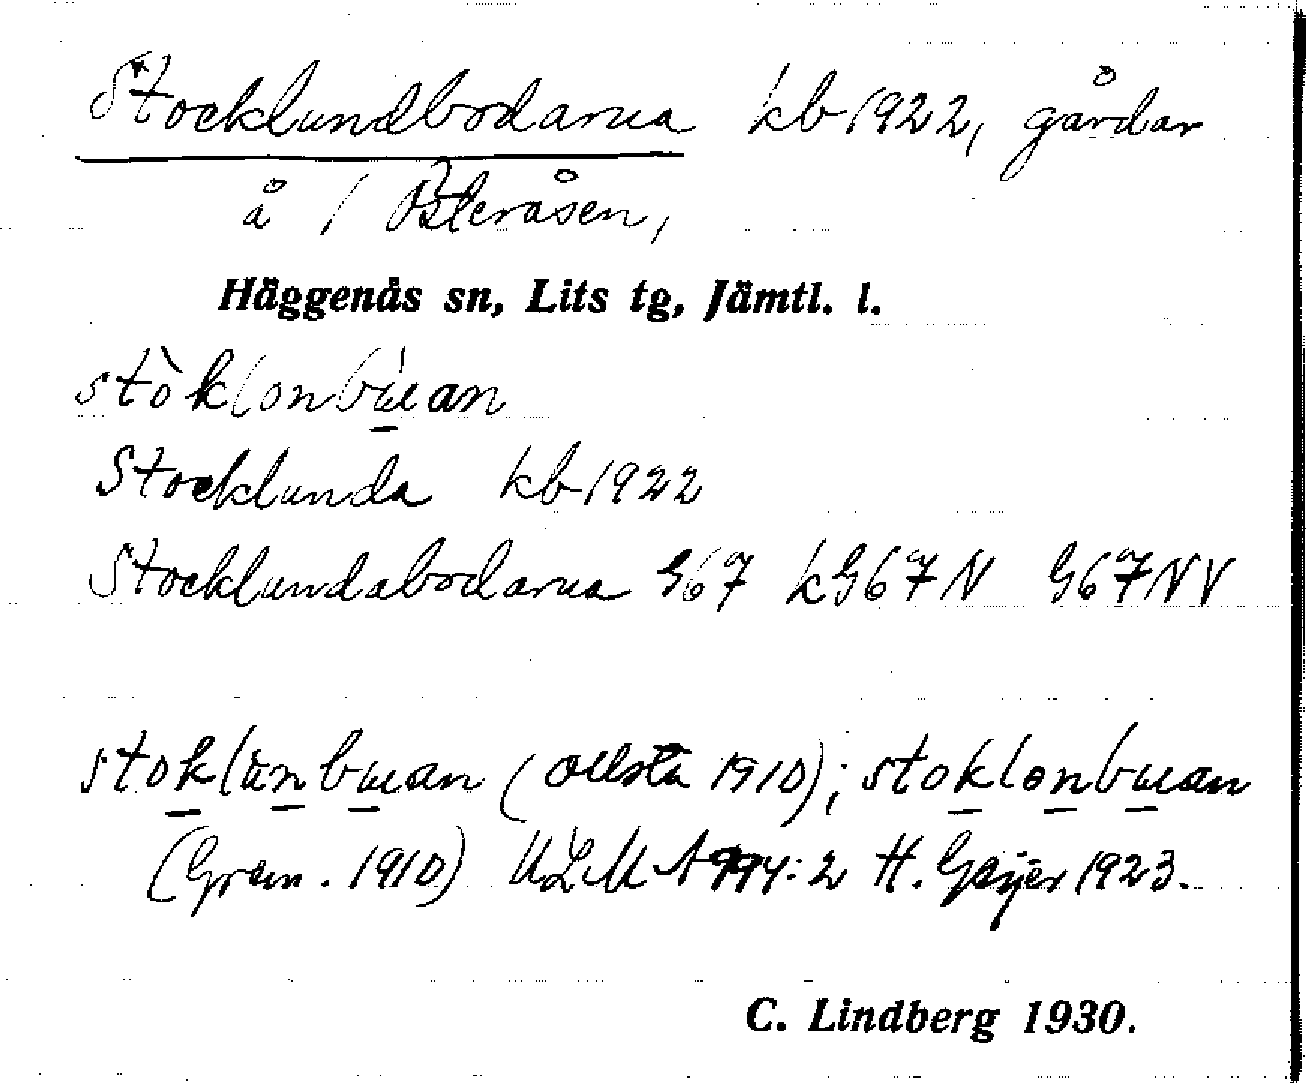 Stocklundbodarna kb 1922, gårdar
å / Österåsen,
Häggenås sn, Lits tg, Jämtl. l.
stòklonbúan
Stocklunda kb 1922
Stocklundabodarna G67 kG67N G67NV
stoklūnbuan (Ollsta 1910); stoklonbuan
(Gran. 1910) ULMA 994:2 H. Geijer 1923.
C. Lindberg 1930.